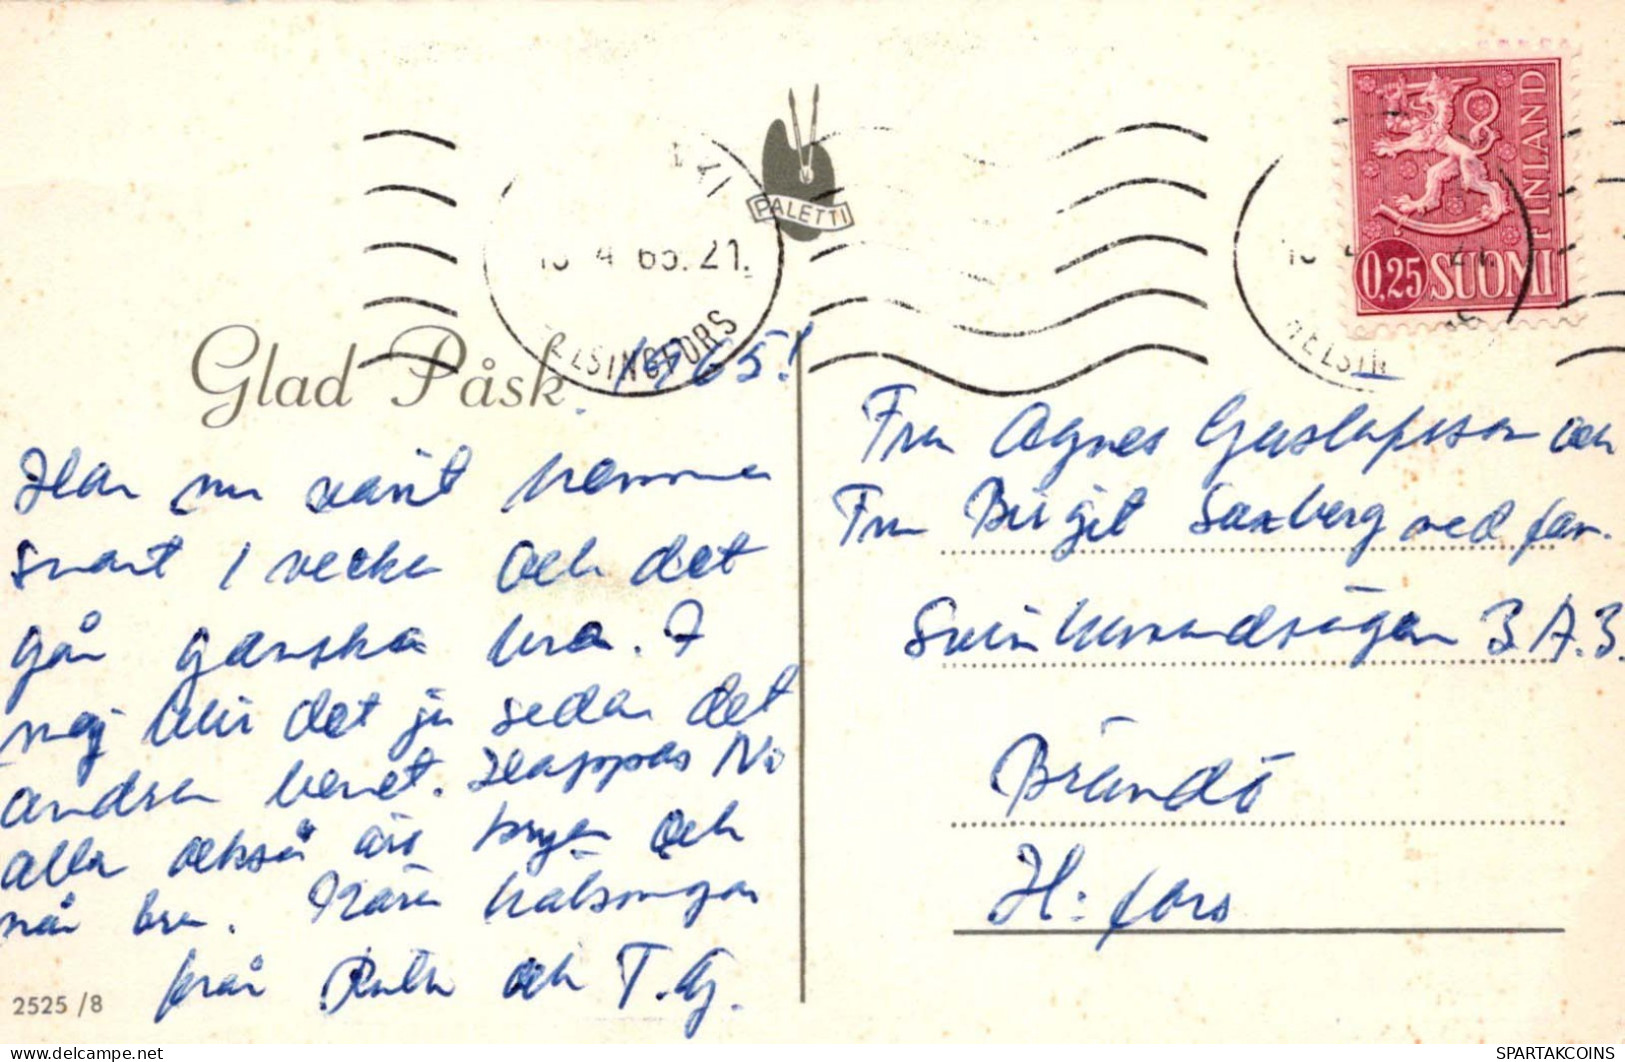 PALETTI
4 65.21.
HELSINGFORS
FINLAND
0,25 SUOMI
HELSIN
Glad Påsk 1965!
Har nu varit hemma
snart 1 vecka och det
går ganska bra. I
maj blir det ju sedan det
andra benet. Hoppas Ni
alla också är krya och
mår bra. Kära hälsningar
från Ruth och T.G.
2525/8
Fru Agnes Gustafsson och
Fru Birgit Saxberg med fam.
Svinhuvudsvägen 3 A.3.
Brändö
H:fors
delcampe.net
SPARTAKCOINS